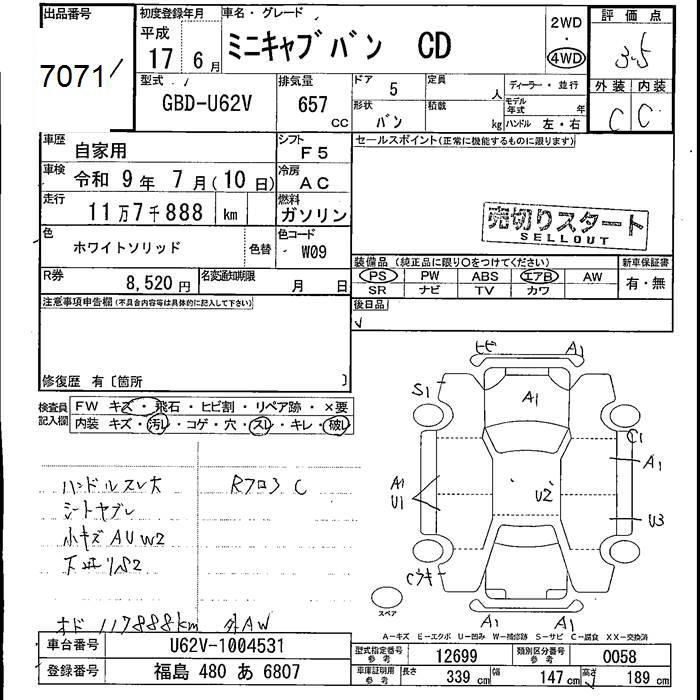 出品番号
7071
初度登録年月
平成
17 6月
車名・グレード
ミニキャブバン CD
2WD
・
4WD
評価点
3.5
型式
GBD-U62V
排気量
657 CC
ドア 5
定員 人
形状 バン
積載 kg
ディーラー・並行
モデル年式 年
ハンドル 左・右
外装 内装
C C
車歴 自家用
シフト F5
セールスポイント(正常に機能するものに限ります)
車検 令和 9年 7月(10日)
冷房 AC
走行 11万7千888 km
燃料 ガソリン
売切りスタート
SELLOUT
色 ホワイトソリッド 色替
色コード W09
装備品(純正品に限り○をつけてください)
新車保証書
PS PW ABS エアB AW
有・無
SR ナビ TV カワ
R券 8,520円
名変通知期限 月 日
後日品
注意事項申告欄(不具合内容等は具体的に記入して下さい)
修復歴 有〔箇所 〕
検査員記入欄
FW キズ・飛石・ヒビ割・リペア跡・×要
内装 キズ・汚レ・コゲ・穴・スレ・キレ・破レ
ハンドルスレ大
シートヤブレ
小キズAUW2
RフロアC
オド 117888km 外AW
ヒビ A1
S1
A1
C1
A1
A1
U1
U2
U3
Cウキ
スペア
A1 A1
A-キズ E-エクボ U-凹み W-補修跡 S-サビ C-腐食 XX-交換済
車台番号 U62V-1004531
登録番号 福島 480 あ 6807
型式指定番号 参考 12699
類別区分番号 参考 0058
車庫証明用 参考 長さ 339 cm 幅 147 cm 高さ 189 cm